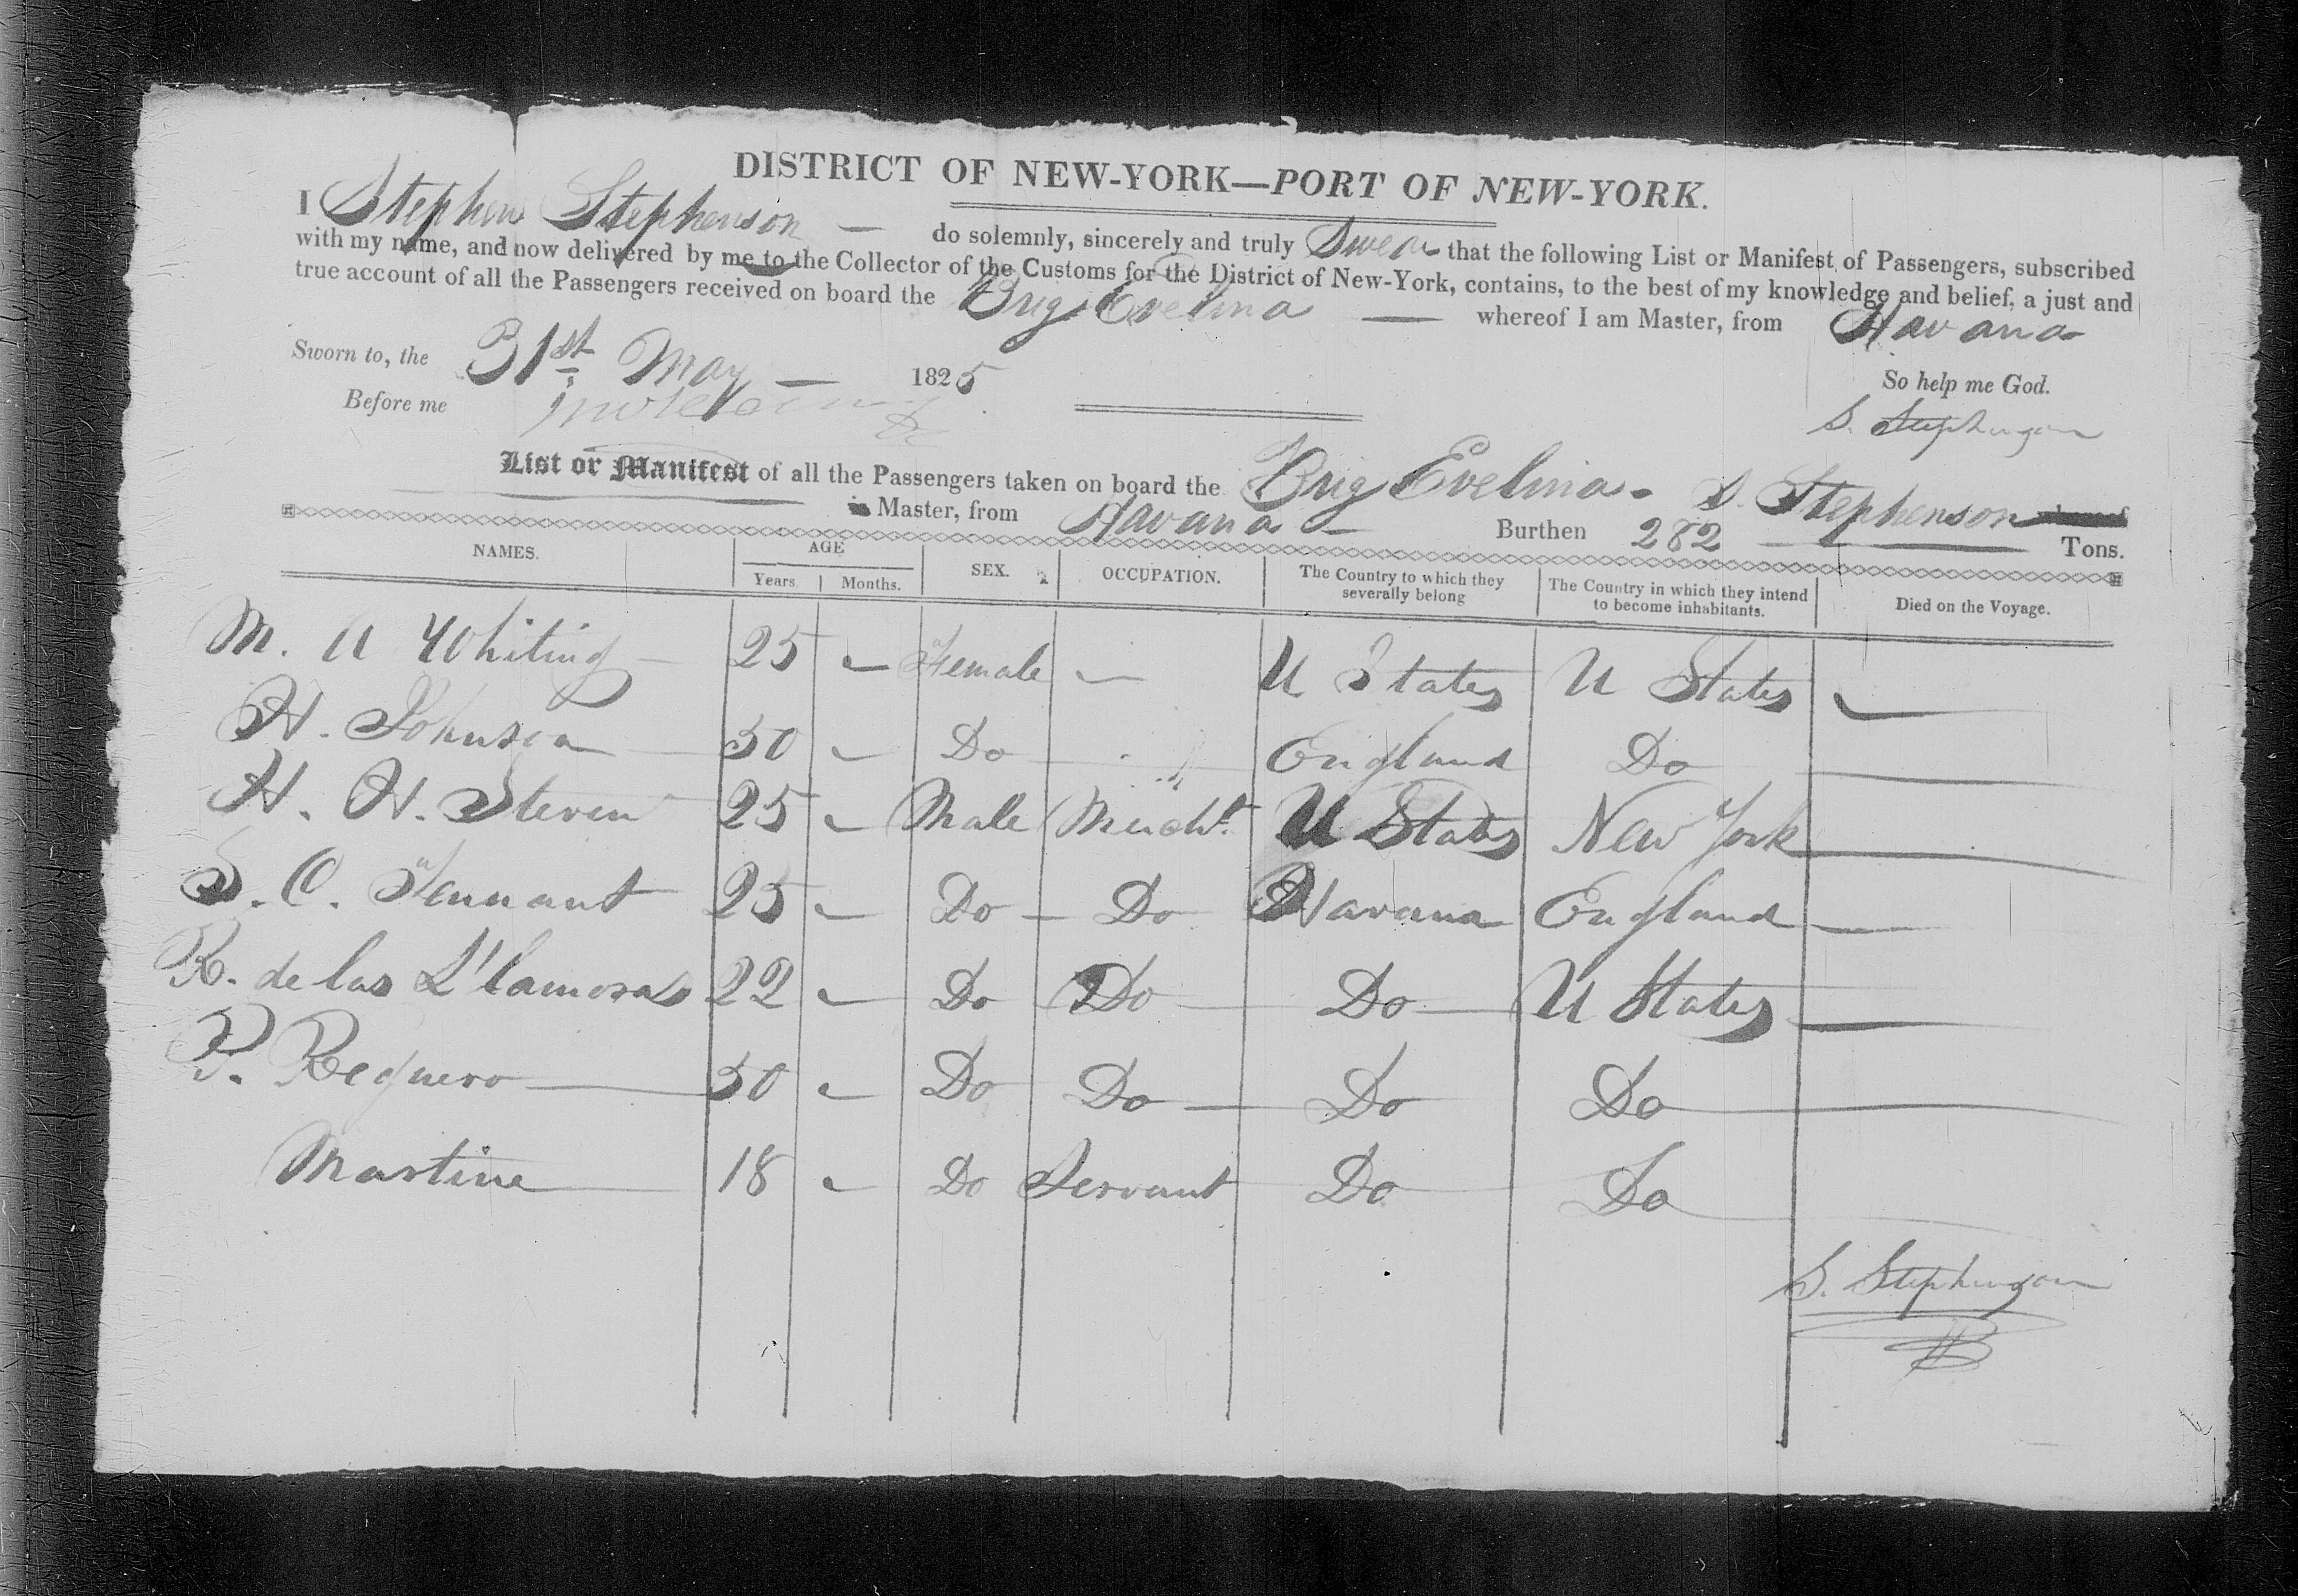 DISTRICT OF NEW-YORK—PORT OF NEW-YORK.
I Stephen Stephenson — do solemnly, sincerely and truly Swear that the following List or Manifest of Passengers, subscribed
with my name, and now delivered by me to the Collector of the Customs for the District of New-York, contains, to the best of my knowledge and belief, a just and
true account of all the Passengers received on board the Brig Evelina — whereof I am Master, from Havana
Sworn to, the 31st May — 1825
So help me God.
Before me
S. Stephenson
List or Manifest of all the Passengers taken on board the Brig Evelina. S. Stephenson
is Master, from Havana — Burthen 282 — Tons.
NAMES. AGE SEX. OCCUPATION. The Country to which they severally belong The Country in which they intend to become inhabitants. Died on the Voyage.
Years. Months.
M. A Whiting 25 — Female — U States U States —
H. Johnson 30 — Do England Do
H. H. Steven 25 — Male Mercht. U States New York
S. C. Tennant 25 — Do — Do Havana England —
R. de las L'lamosas 22 — Do Do Do U States —
P. Requero 30 — Do Do — Do Do
Martine 18 — Do Servant Do Do
S. Stephenson